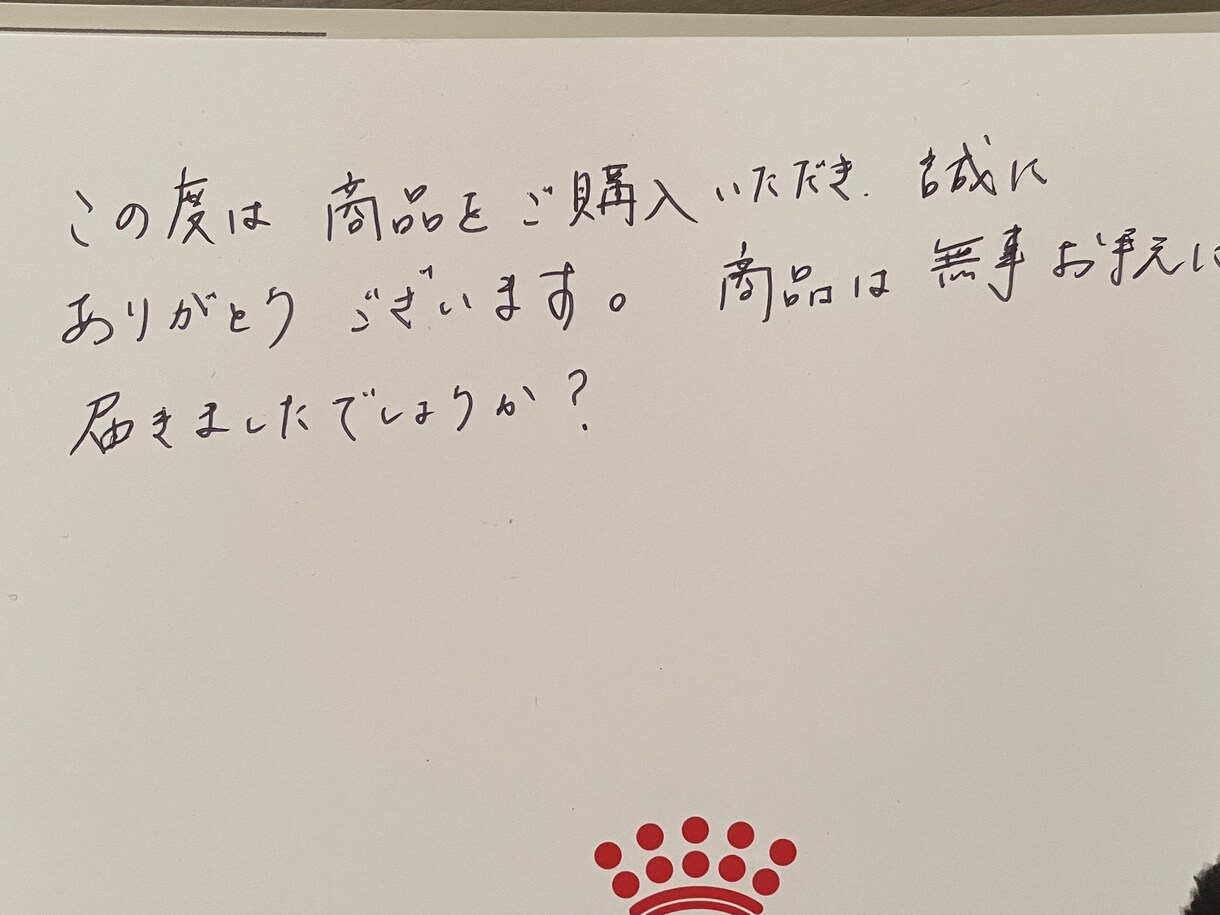 この度は 商品をご購入いただき、誠に
ありがとうございます。 商品は無事お手元に
届きましたでしょうか?